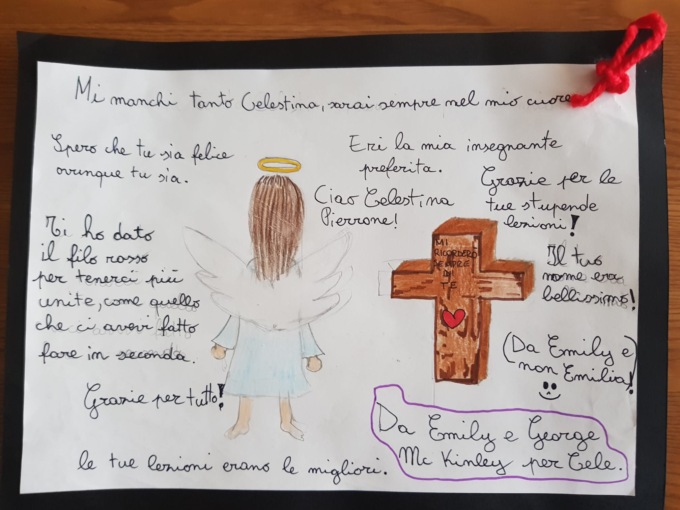 Mi manchi tanto Celestina, sarai sempre nel mio cuore
Spero che tu sia felice
ovunque tu sia.
Eri la mia insegnante
preferita.
Ciao Celestina
Pierrone!
Grazie per le
tue stupende
lezioni!
Ti ho dato
il filo rosso
per tenerci più
unite, come quello
che ci avevi fatto
fare in seconda.
MI
RICORDERÒ
SEMPRE
DI
TE
Il tuo
nome era
bellissimo!
(Da Emily e
non Emilia!)
Grazie per tutto!
Da Emily e George
Mc Kinley per Cele.
le tue lezioni erano le migliori.